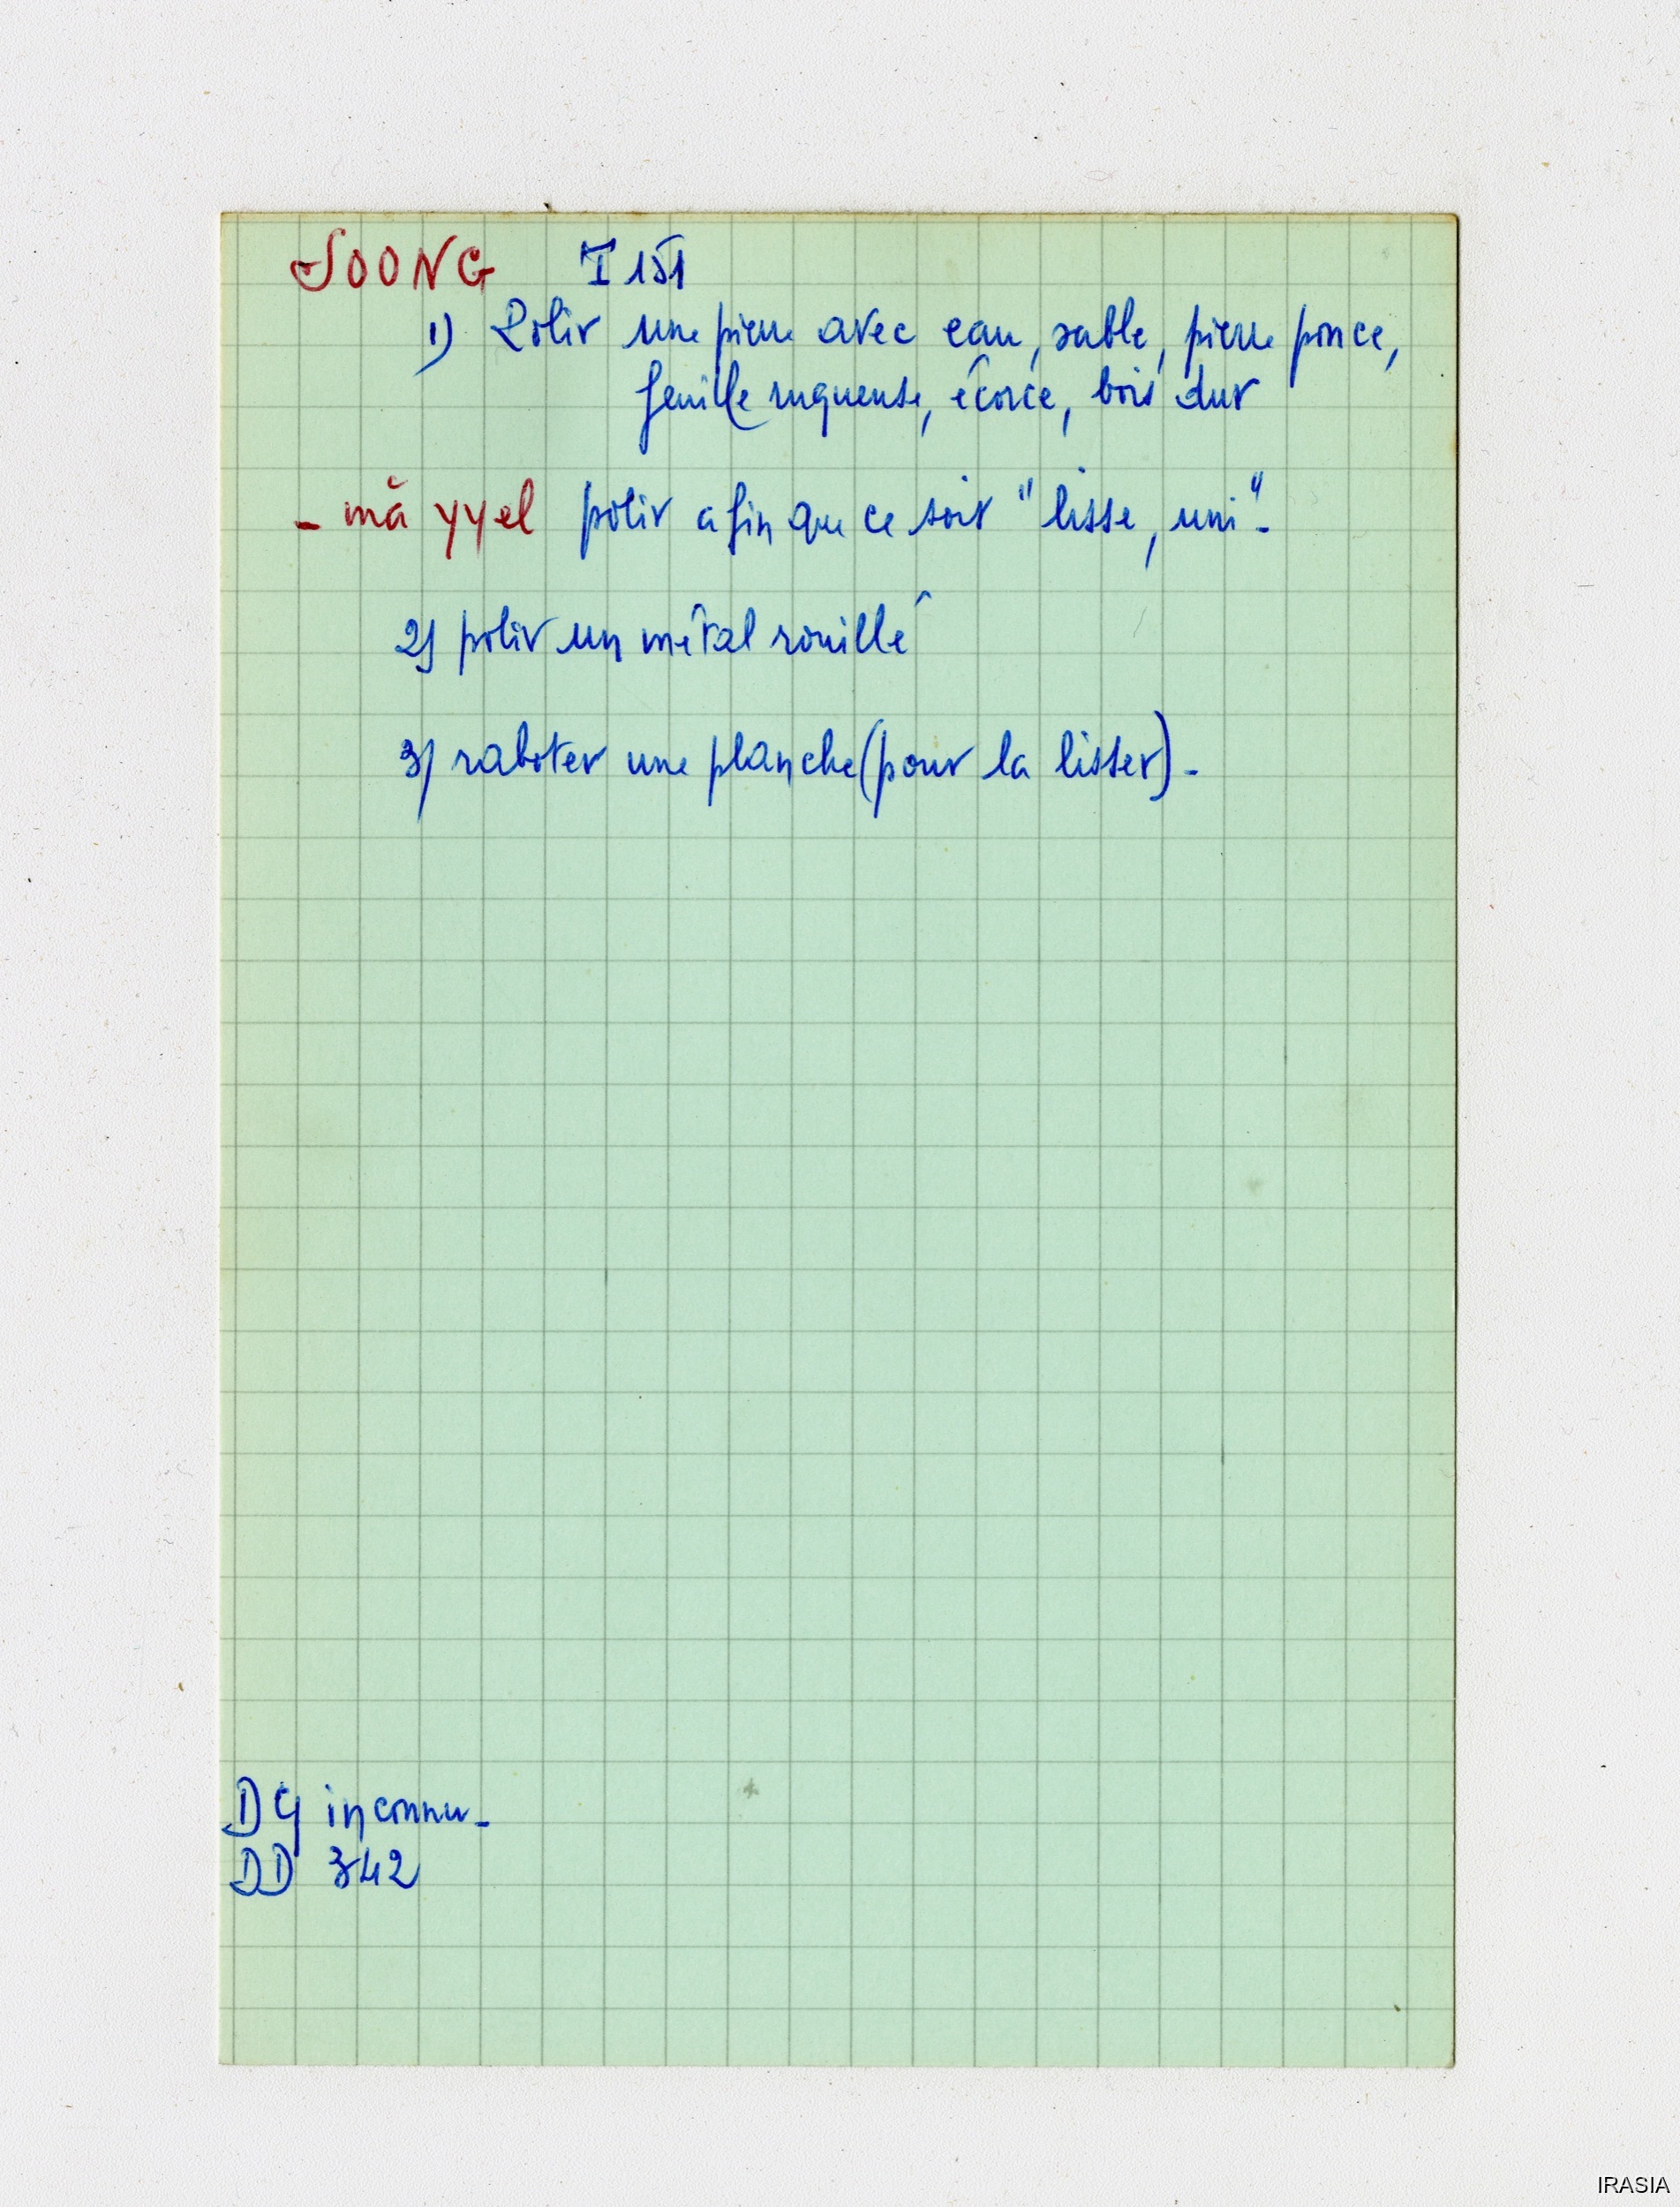 SOONG I 151
1) Polir une pierre avec eau, sable, pierre ponce,
feuille rugueuse, écorce, bois dur
- mă yyel polir afin que ce soit "lisse, uni"-
2) polir un métal rouillé
3) raboter une planche (pour la lisser)-
DG inconnu-
DD 342
IRASIA